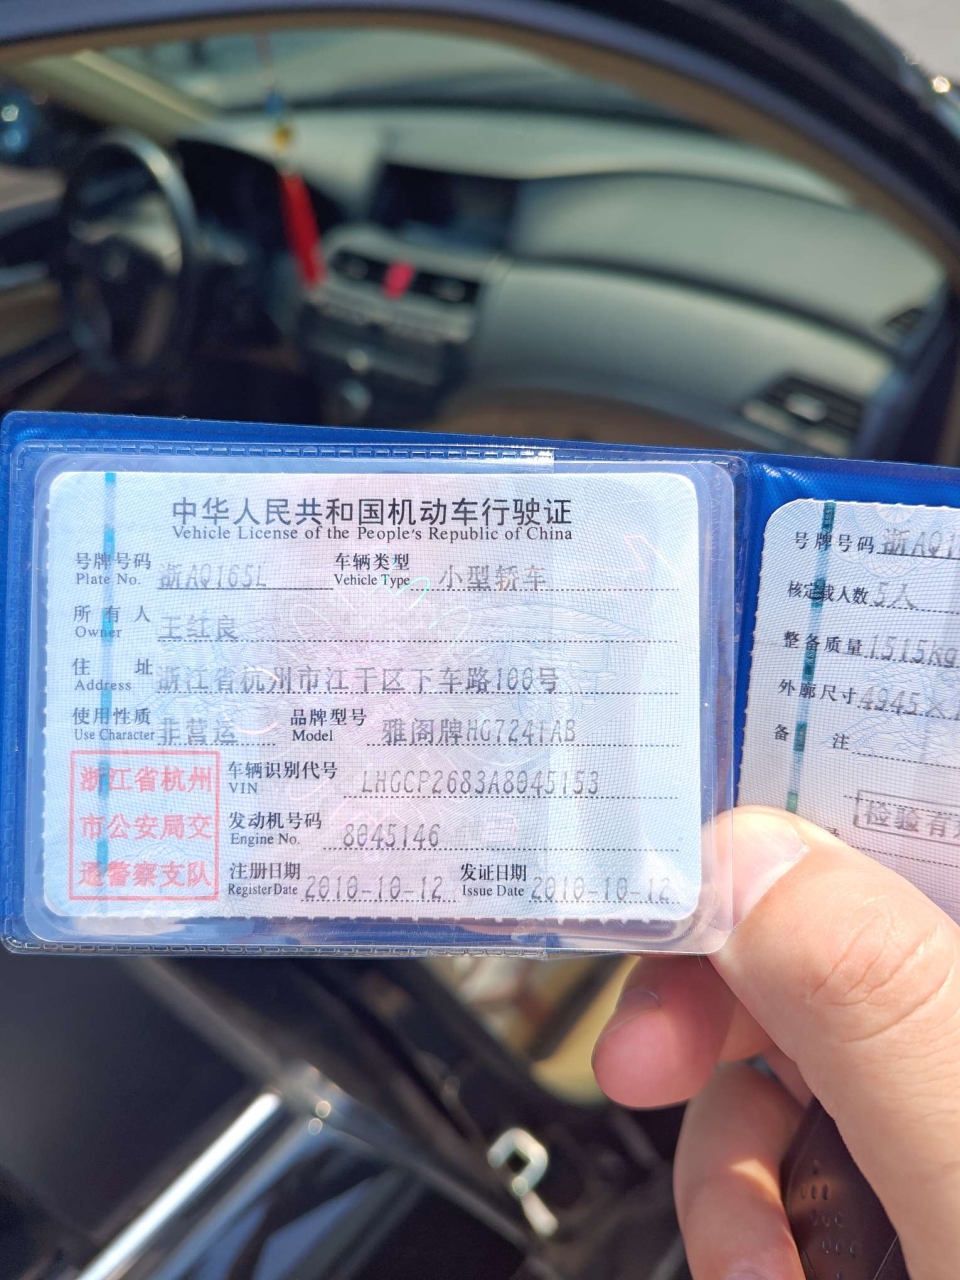 中华人民共和国机动车行驶证
Vehicle License of the People's Republic of China
号牌号码 浙AQ165L 车辆类型 小型轿车
Plate No. Vehicle Type
所有人 王红良
Owner
住址 浙江省杭州市江干区下车路100号
Address
使用性质 非营运 品牌型号 雅阁牌HG7241AB
Use Character Model
浙江省杭州
市公安局交
通警察支队
车辆识别代号 LHGCP2683A8045153
VIN
发动机号码 8045146
Engine No.
注册日期 2010-10-12 发证日期 2010-10-12
Register Date Issue Date
号牌号码 浙AQ1
核定载人数 5人
整备质量 1515kg
外廓尺寸 4945×
备注
检验有